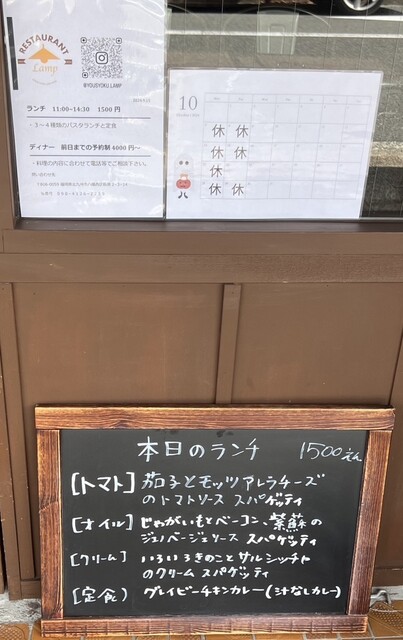 RESTAURANT
Lamp
@YOUSYOKU.LAMP
ランチ 11:00~14:30 1500円
・3~4種類のパスタランチと定食
ディナー 前日までの予約制 4000円~
・料理の内容に合わせて電話等でご相談下さい。
10
休 休
休 休
休
休 休
本日のランチ 1500えん
[トマト] 茄子とモッツアレラチーズ
のトマトソース スパゲッティ
[オイル] じゃがいもとベーコン、紫蘇の
ジェノベーゼソース スパゲッティ
[クリーム] いろいろきのことサルシッチャ
のクリーム スパゲッティ
[定食] グレイビーチキンカレー(汁なしカレー)